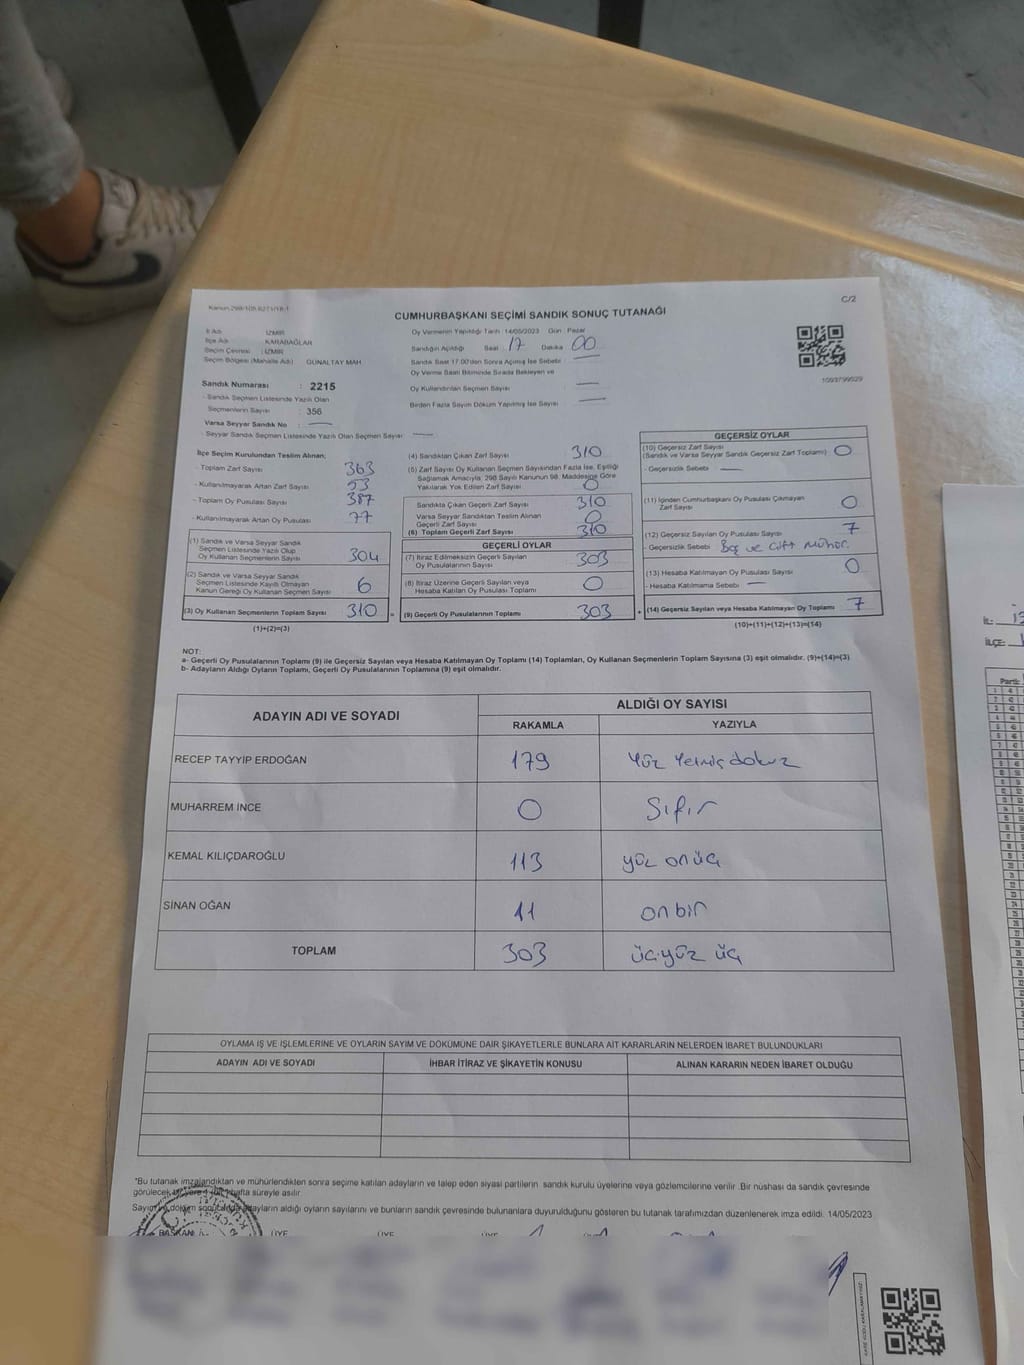 Kanun.298/105.827/1/18-1
C/2
CUMHURBAŞKANI SEÇİMİ SANDIK SONUÇ TUTANAĞI
İl Adı : İZMİR
İlçe Adı : KARABAĞLAR
Seçim Çevresi : İZMİR
Seçim Bölgesi (Mahalle Adı) : GÜNALTAY MAH.
Sandık Numarası : 2215
- Sandık Seçmen Listesinde Yazılı Olan
Seçmenlerin Sayısı : 356
Varsa Seyyar Sandık No :
- Seyyar Sandık Seçmen Listesinde Yazılı Olan Seçmen Sayısı :
Oy Vermenin Yapıldığı Tarih 14/05/2023 Gün Pazar
Sandığın Açıldığı Saat 17 Dakika 00
Sandık Saat 17.00'den Sonra Açılmış İse Sebebi
Oy Verme Saati Bitiminde Sırada Bekleyen ve
Oy Kullandırılan Seçmen Sayısı
Birden Fazla Sayım Döküm Yapılmış İse Sayısı
İlçe Seçim Kurulundan Teslim Alınan;
- Toplam Zarf Sayısı 363
- Kullanılmayarak Artan Zarf Sayısı 53
- Toplam Oy Pusulası Sayısı 387
- Kullanılmayarak Artan Oy Pusulası 77
(1) Sandık ve Varsa Seyyar Sandık
Seçmen Listesinde Yazılı Olup
Oy Kullanan Seçmenlerin Sayısı 304
(2) Sandık ve Varsa Seyyar Sandık
Seçmen Listesinde Kayıtlı Olmayan
Kanun Gereği Oy Kullanan Seçmen Sayısı 6
(3) Oy Kullanan Seçmenlerin Toplam Sayısı 310 =
(1)+(2)=(3)
(4) Sandıktan Çıkan Zarf Sayısı 310
(5) Zarf Sayısı Oy Kullanan Seçmen Sayısından Fazla İse, Eşitliği
Sağlamak Amacıyla; 298 Sayılı Kanunun 98. Maddesine Göre
Yakılarak Yok Edilen Zarf Sayısı 0
Sandıkta Çıkan Geçerli Zarf Sayısı 310
Varsa Seyyar Sandıktan Teslim Alınan
Geçerli Zarf Sayısı 0
(6) Toplam Geçerli Zarf Sayısı 310
GEÇERLİ OYLAR
(7) İtiraz Edilmeksizin Geçerli Sayılan
Oy Pusulalarının Sayısı 303
(8) İtiraz Üzerine Geçerli Sayılan veya
Hesaba Katılan Oy Pusulası Toplamı 0
(9) Geçerli Oy Pusulalarının Toplamı 303 +
GEÇERSİZ OYLAR
(10) Geçersiz Zarf Sayısı
(Sandık ve Varsa Seyyar Sandık Geçersiz Zarf Toplamı) 0
- Geçersizlik Sebebi
(11) İçinden Cumhurbaşkanı Oy Pusulası Çıkmayan
Zarf Sayısı 0
(12) Geçersiz Sayılan Oy Pusulası Sayısı 7
- Geçersizlik Sebebi Boş ve Çift Mühür.
(13) Hesaba Katılmayan Oy Pusulası Sayısı 0
- Hesaba Katılmama Sebebi
(14) Geçersiz Sayılan veya Hesaba Katılmayan Oy Toplamı 7
(10)+(11)+(12)+(13)=(14)
NOT:
a- Geçerli Oy Pusulalarının Toplamı (9) ile Geçersiz Sayılan veya Hesaba Katılmayan Oy Toplamı (14) Toplamları, Oy Kullanan Seçmenlerin Toplam Sayısına (3) eşit olmalıdır. (9)+(14)=(3)
b- Adayların Aldığı Oyların Toplamı, Geçerli Oy Pusulalarının Toplamına (9) eşit olmalıdır.
ADAYIN ADI VE SOYADI
ALDIĞI OY SAYISI
RAKAMLA YAZIYLA
RECEP TAYYİP ERDOĞAN 179 Yüz Yetmiş dokuz
MUHARREM İNCE 0 Sıfır
KEMAL KILIÇDAROĞLU 113 yüz onüç
SİNAN OĞAN 11 onbir
TOPLAM 303 üçyüz üç
OYLAMA İŞ VE İŞLEMLERİNE VE OYLARIN SAYIM VE DÖKÜMÜNE DAİR ŞİKAYETLERLE BUNLARA AİT KARARLARIN NELERDEN İBARET BULUNDUKLARI
ADAYIN ADI VE SOYADI İHBAR İTİRAZ VE ŞİKAYETİN KONUSU ALINAN KARARIN NEDEN İBARET OLDUĞU
*Bu tutanak imzalandıktan ve mühürlendikten sonra seçime katılan adayların ve talep eden siyasi partilerin sandık kurulu üyelerine veya gözlemcilerine verilir. Bir nüshası da sandık çevresinde
görülecek bir yere hafta süreyle asılır
Sayım ve döküm sonucunda adayların aldığı oyların sayılarını ve bunların sandık çevresinde bulunanlara duyurulduğunu gösteren bu tutanak tarafımızdan düzenlenerek imza edildi. 14/05/2023
BAŞKAN ÜYE ÜYE ÜYE
İL:
İLÇE:
Parti